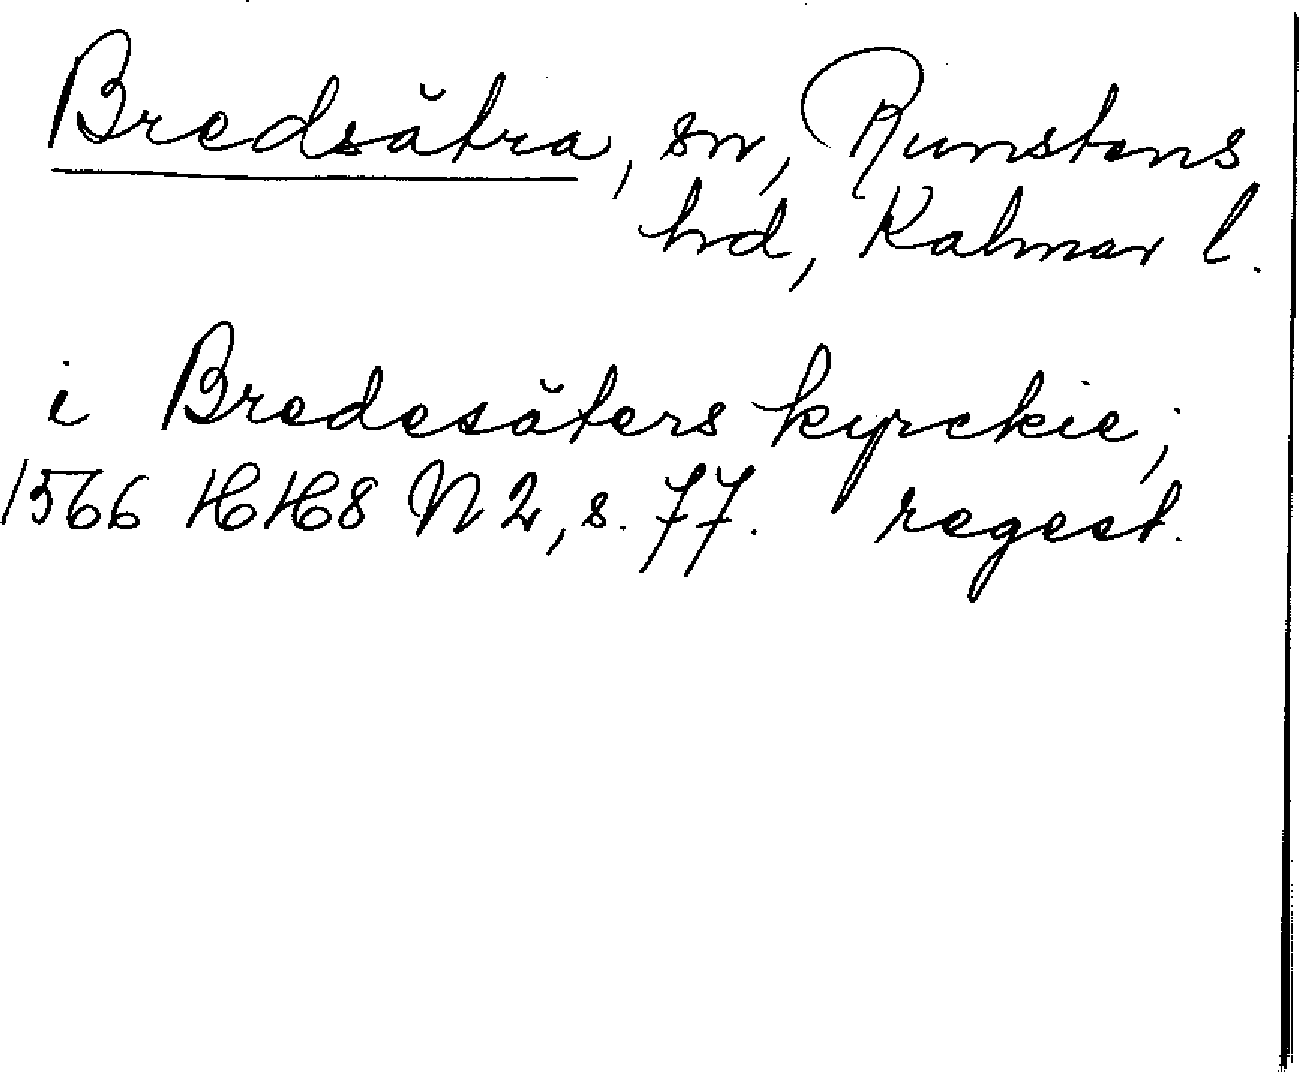 Bredsätra, sn, Runstens
hd, Kalmar l.
i Bredesäters kyrckie;
1566 HH8 N 2, s. 77. regest.